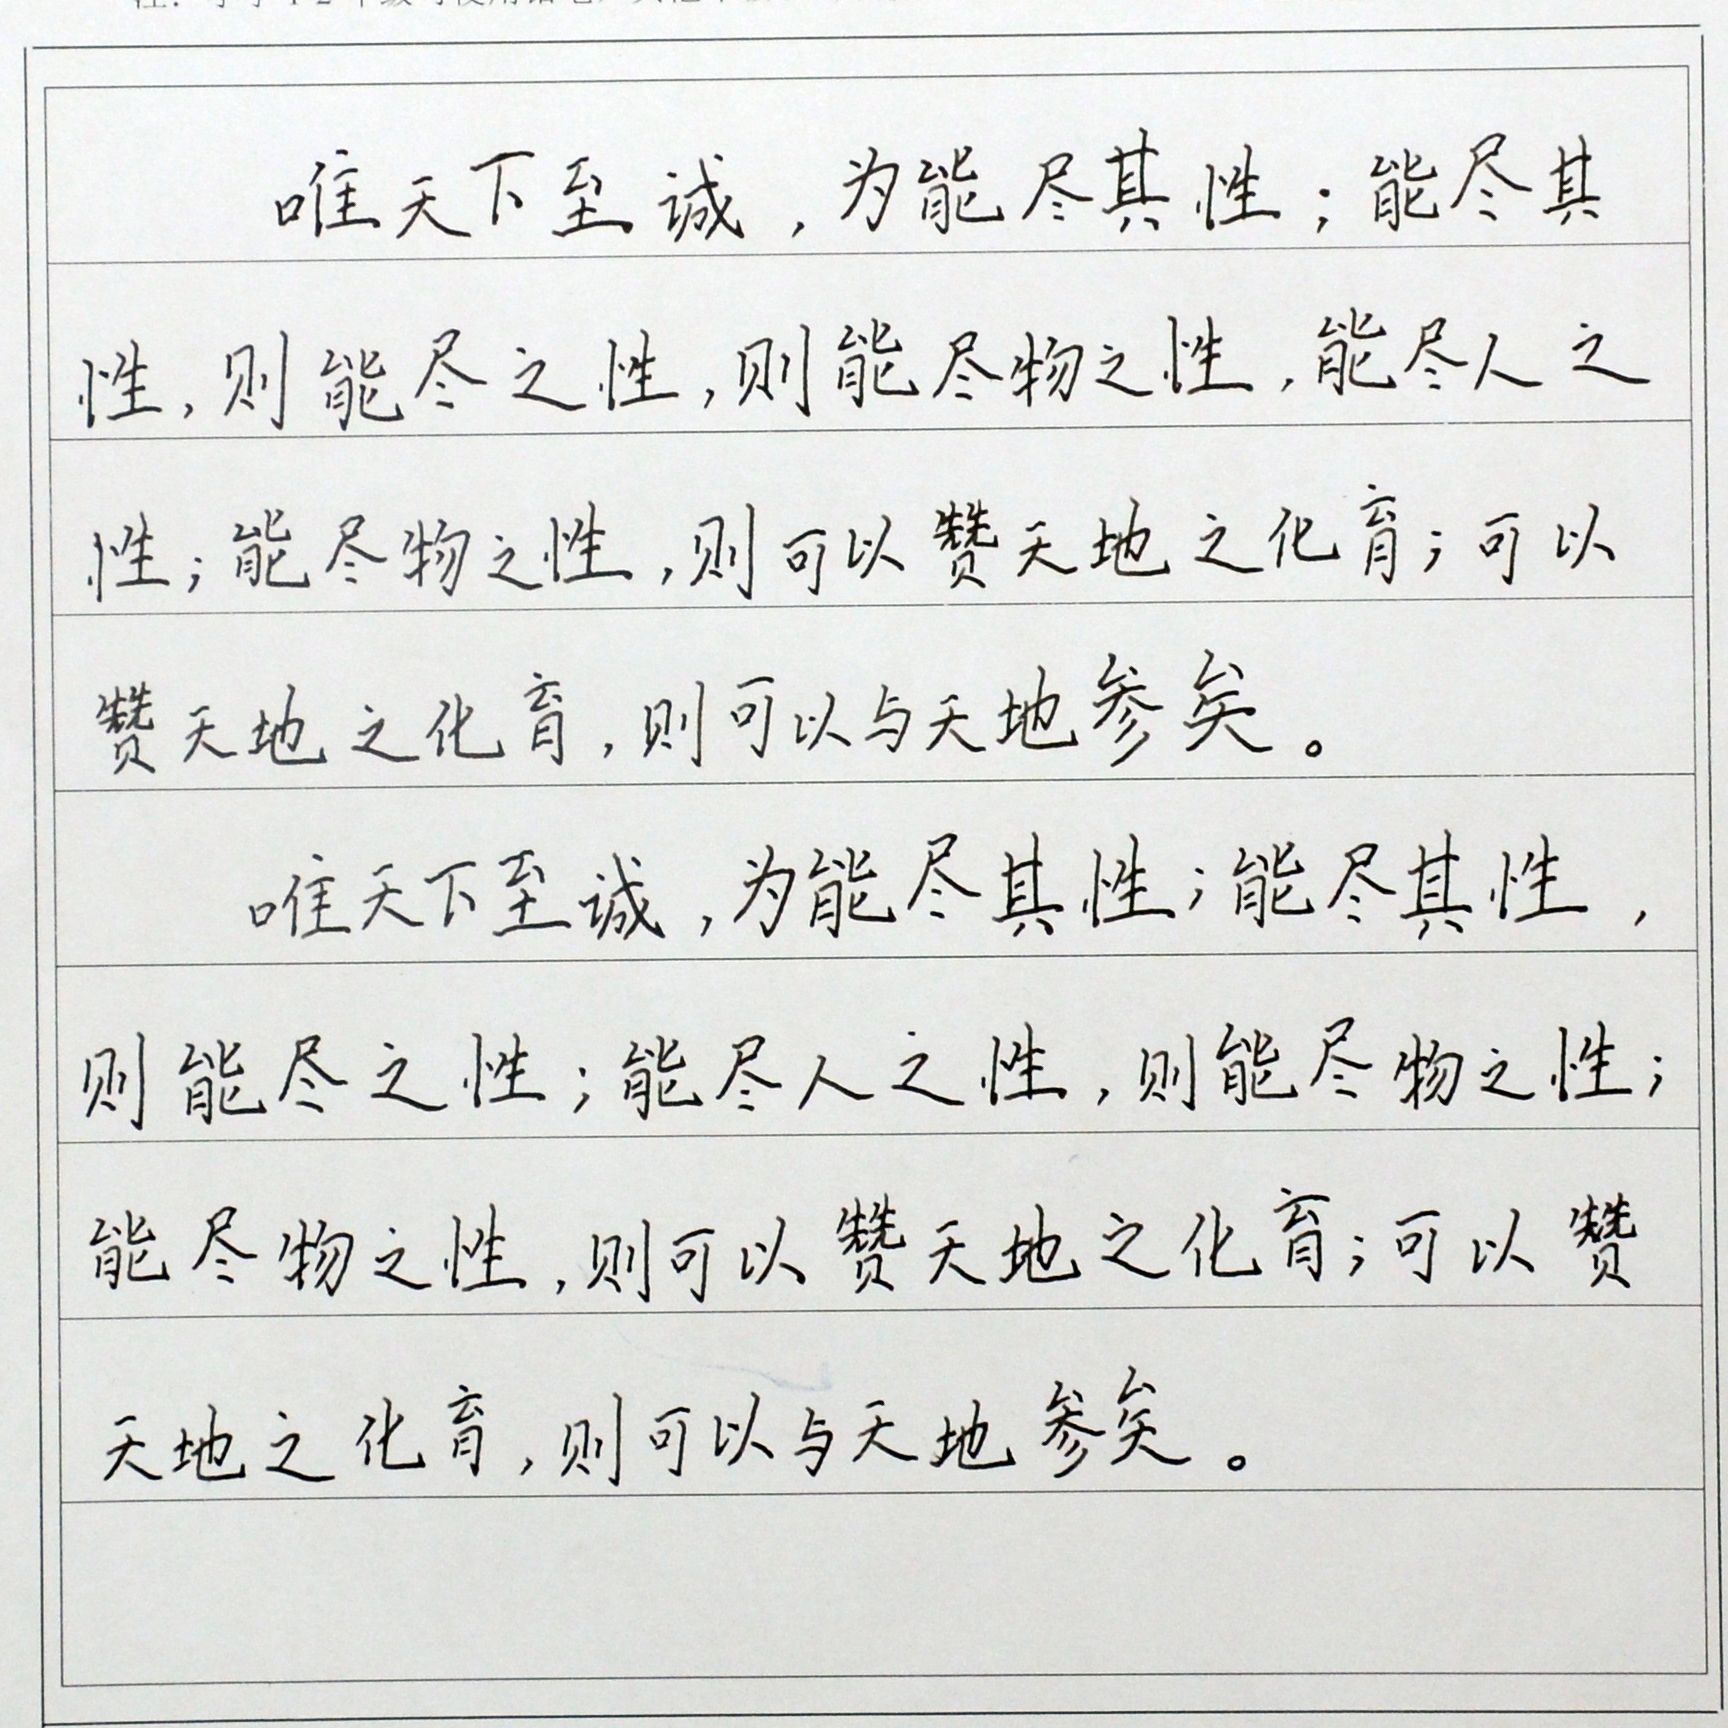 唯天下至诚，为能尽其性；能尽其
性，则能尽之性，则能尽物之性，能尽人之
性；能尽物之性，则可以赞天地之化育；可以
赞天地之化育，则可以与天地参矣。
唯天下至诚，为能尽其性；能尽其性，
则能尽之性；能尽人之性，则能尽物之性；
能尽物之性，则可以赞天地之化育；可以赞
天地之化育，则可以与天地参矣。